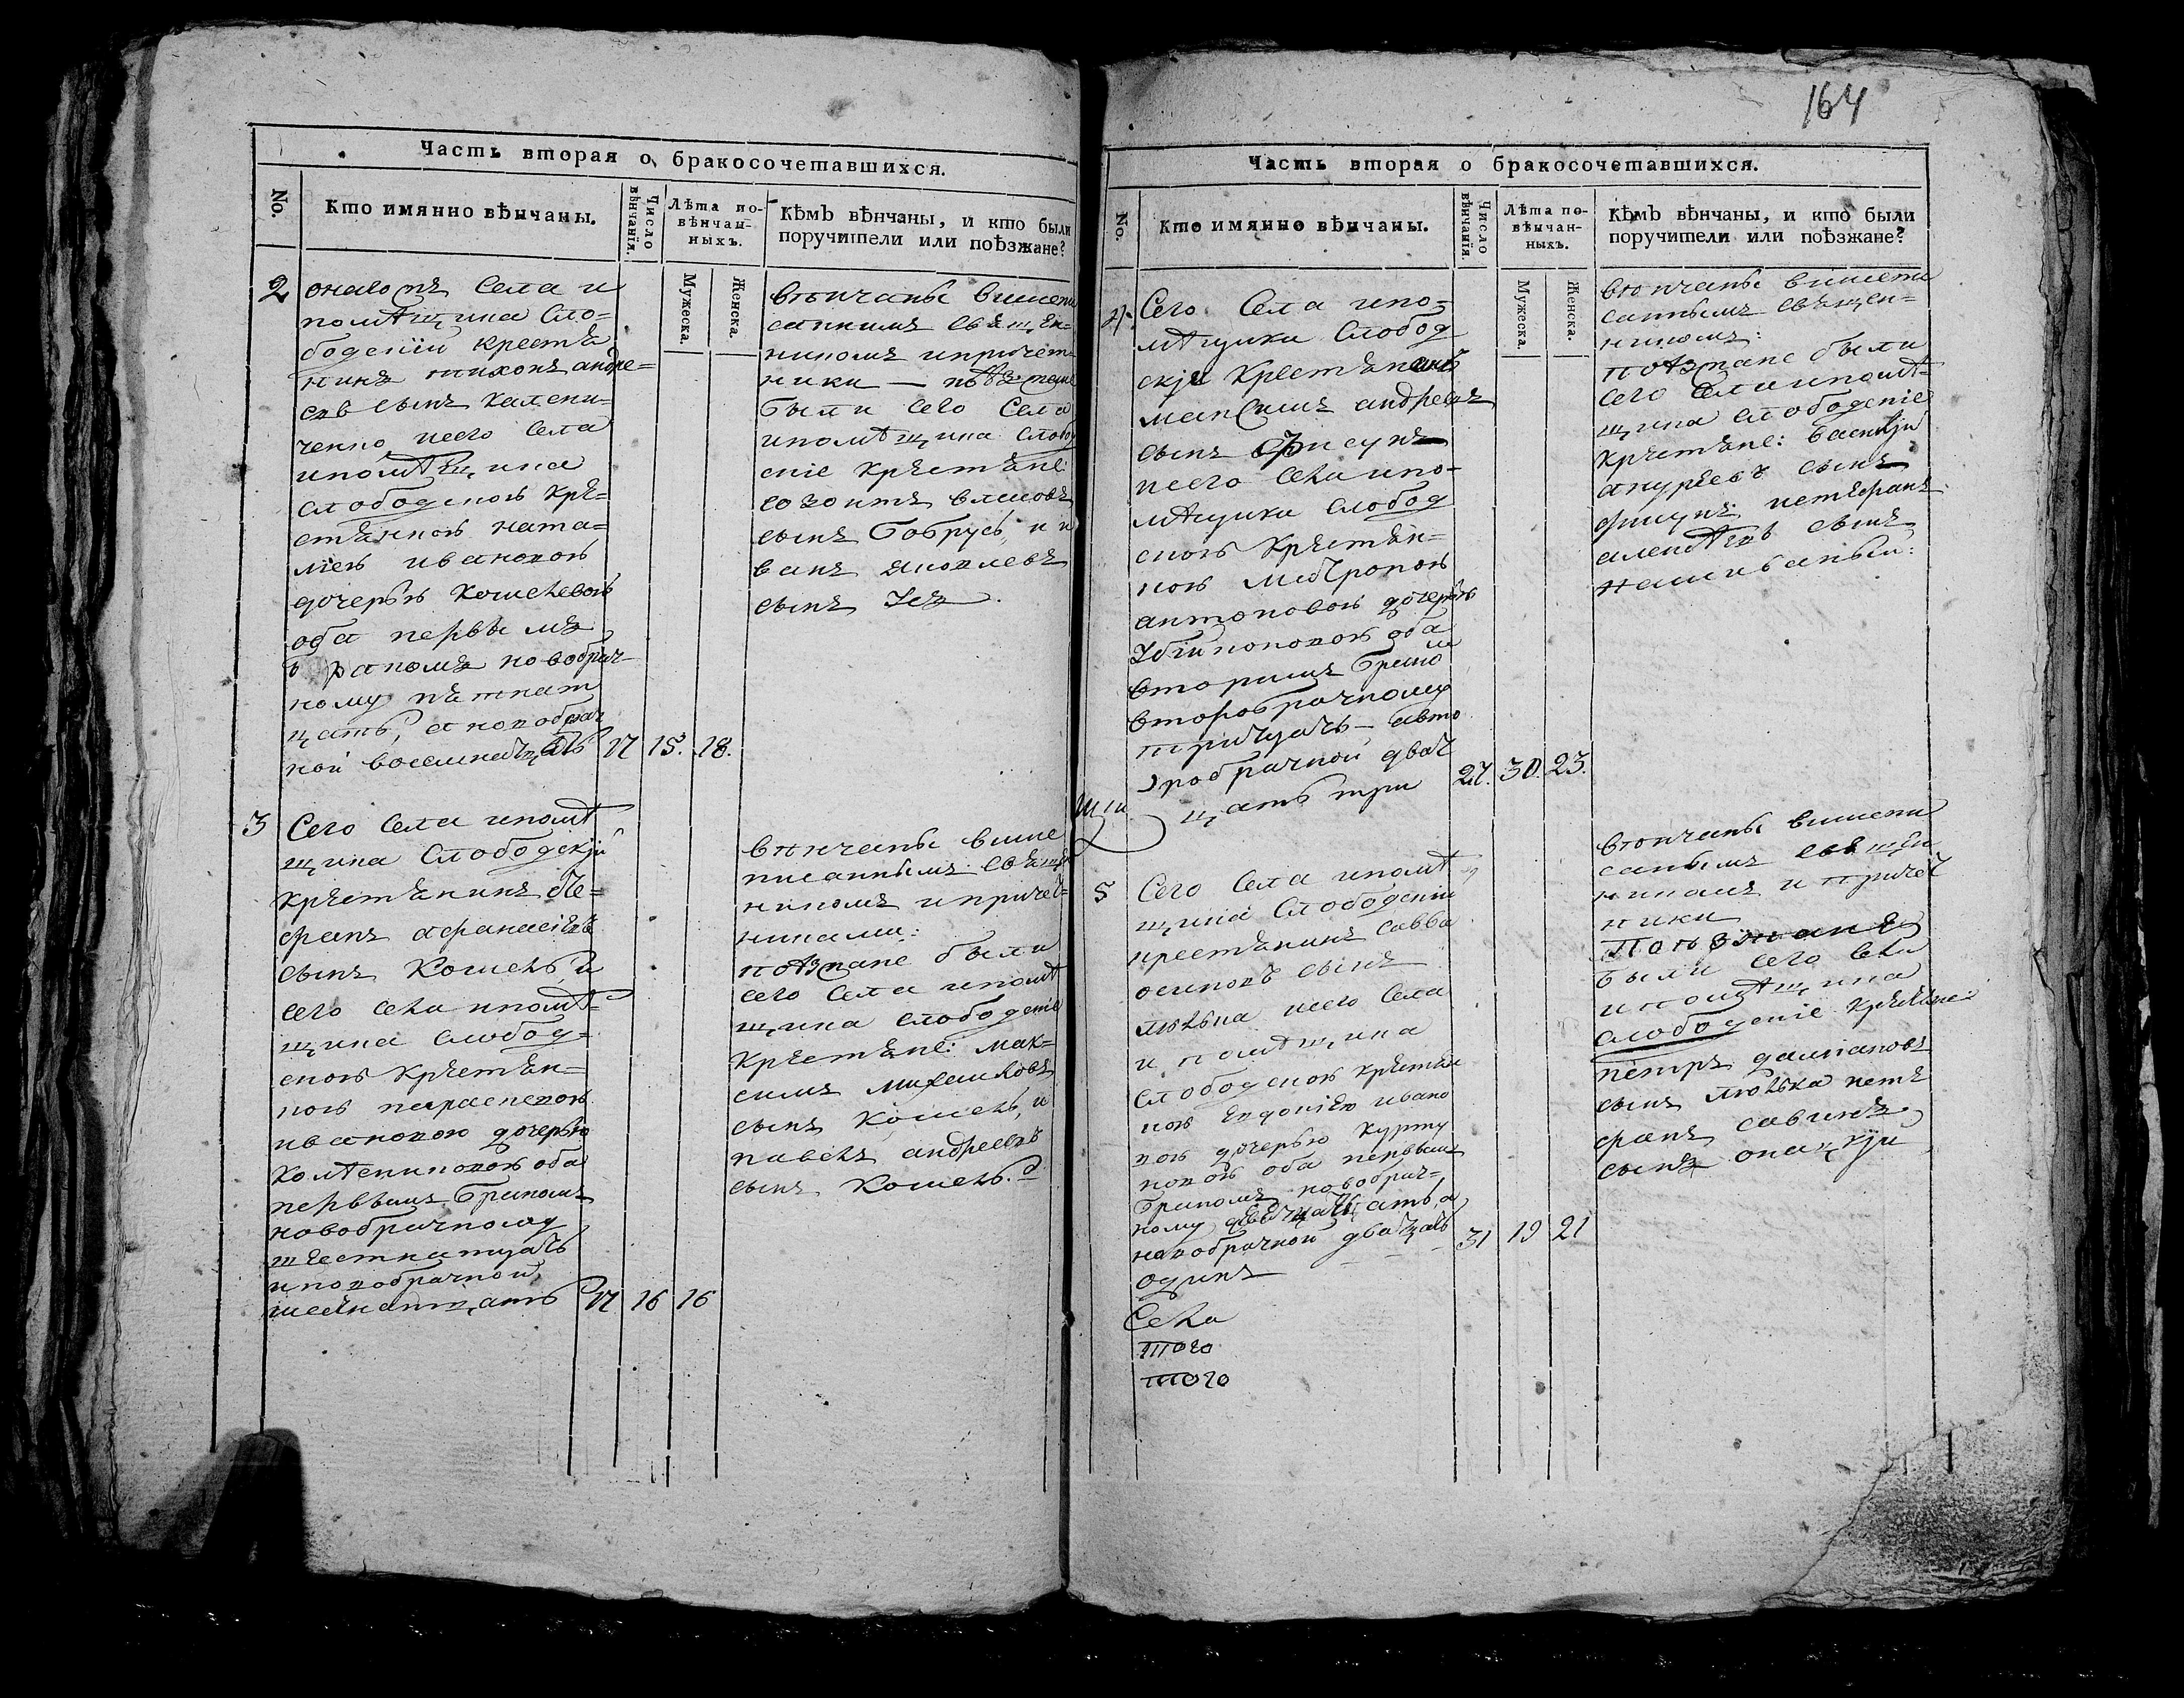 Часть вторая о бракосочетавшихся.
No.
Кто имянно вѣнчаны.
Число вѣнчанія.
Лѣта по-
вѣнчан-
ныхъ.
Мужеска.
Женска.
Кѣмъ вѣнчаны, и кто были
поручители или поѣзжане?
2
села и
помѣщика Сло-
бодскій крестя
нинъ тихонъ андре=
евъ сынъ калени-
ченко исего села
ипомѣщика
слободского кре=
стянкою ната=
лiею ивановою
дочерью кошелевою
оба первымъ
бракомъ новобрач-
ному пятнат
цать, а новобрач
ной восемнатцать 17 15. 18.
вѣнчаны вышепи
саннымъ священ=
никомъ ипричет
ники — поезжане
были сего села
ипомѣщика слобод
скіе крестяне:
созонтъ власовъ
сынъ бобрусь, и и
ванъ яковлевъ
сынъ
3
Сего села ипомѣ
щика Слободскій
крестянинъ сте=
фанъ афанасіевъ
сынъ Кошель и
сего села ипомѣ=
щика слобод=
ского крестян=
кою параскевою
ивановою дочерью
оба
первымъ бракомъ
новобрачному
шестнатцать
иновобрачной
шеснатцать 17 16 16
вѣнчаны выше
писаннымъ священ
никомъ ипричет=
никами:
поѣзжане были
сего села ипомѣ
щика слободскіе
крестяне: мак=
симъ михайловъ
сынъ Кошель, и
павелъ андреевъ
сынъ Кошель.
164
Часть вторая о бракосочетавшихся.
No.
Кто имянно вѣнчаны.
Число вѣнчанія.
Лѣта по-
вѣнчан-
ныхъ.
Мужеска.
Женска.
Кѣмъ вѣнчаны, и кто были
поручители или поѣзжане?
4.
Сего Села ипо-
мѣщика Слобод
скій крестянинъ
максимъ андреевъ
сынъ фисунъ
исего села ипо-
мѣщика слобод
ского крестян=
кою
антоновою дочерью
оба
вторымъ бракомъ
второбрачному
тритцать — авто
робрачной дват
цать три 27. 30. 23.
вѣнчаны вышепи
саннымъ священ=
никомъ:
поѣзжане были
сего села ипомѣ-
щика слободскіе
крестяне: василій
сынъ
фисунъ истефанъ
сынъ
5
Сего села ипомѣ
щика слободскій
крестянинъ савва
осиповъ сынъ
люлька исего села
и помѣщика
слободского крестян
кою Евдокіею ивано
вою дочерью
оба первымъ
бракомъ новобрач=
ному
новобрачной дватцать
одинъ 31 19 21
села
того
того
вѣнчаны вышепи
саннымъ священ
никомъ и причет
ники
поезжане
были сего села
и помѣщика
слободскіе крестяне:
петръ даміановъ
сынъ люлька исте
фанъ савинъ
сынъ